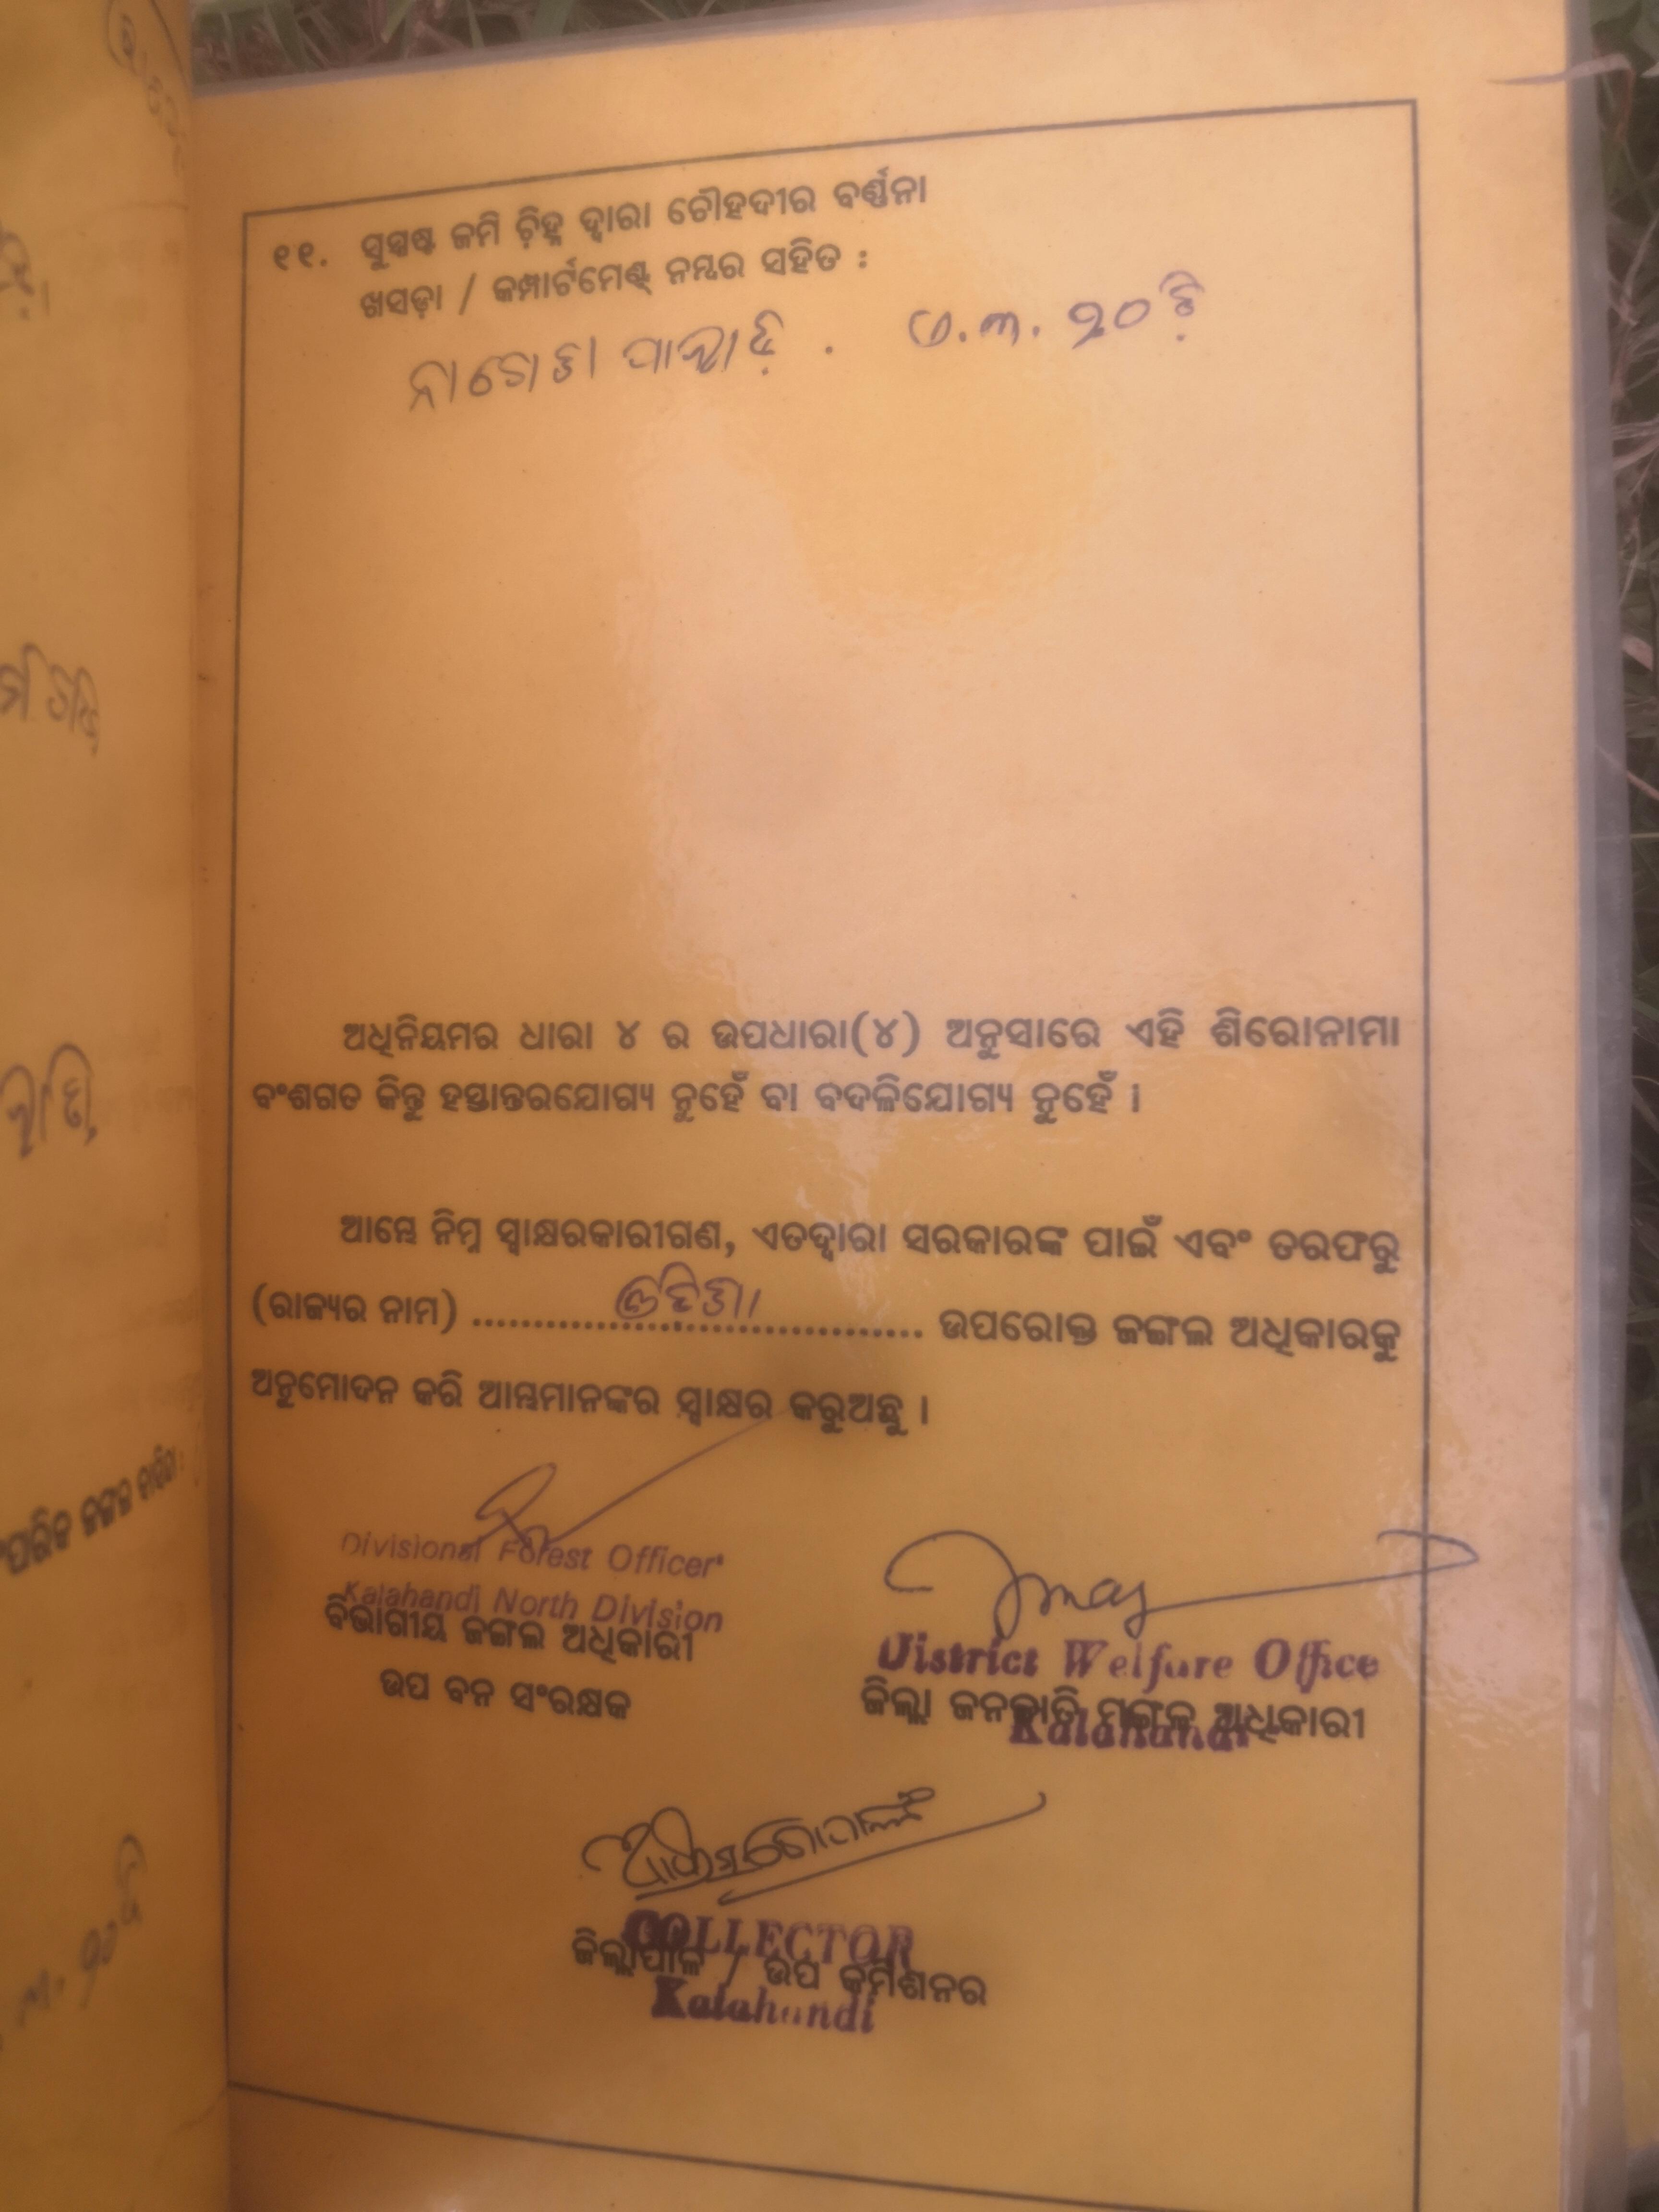 ୧୧. ସୁସ୍ପଷ୍ଟ ଜମି ଚ଼ିହ୍ନ ଦ୍ଵାରା ଚୌହଦୀର ବର୍ଣ୍ଣନା
ଖସଡ଼ା / କମ୍ପାର୍ଟମେଣ୍ଟ୍ ନମ୍ଵର ସହିତ :
୨୦
ଅଧିନିୟମର ଧାରା ୪ ର ଉପଧାରା(୪) ଅନୁସାରେ ଏହି ଶିରୋନାମା
ବଂଶଗତ କିନ୍ତୁ ହସ୍ତାନ୍ତରଯୋଗ୍ୟ ନୁହେଁ ବା ବଦଳିଯୋଗ୍ୟ ନୁହେଁ ।
ଆମ୍ଭେ ନିମ୍ନ ସ୍ଵାକ୍ଷରକାରୀଗଣ, ଏତଦ୍ଵାରା ସରକାରଙ୍କ ପାଇଁ ଏବଂ ତରଫରୁ
(ରାଜ୍ୟର ନାମ) ..................................... ଉପରୋକ୍ତ ଜଙ୍ଗଲ ଅଧିକାରକୁ
ଅନୁମୋଦନ କରି ଆମ୍ଭମାନଙ୍କର ସ୍ଵାକ୍ଷର କରୁଅଛୁ ।
Divisional Forest Officer
Kalahandi North Division
ବିଭାଗୀୟ ଜଙ୍ଗଲ ଅଧିକାରୀ
ଉପ ବନ ସଂରକ୍ଷକ
District Welfare Office
ଜିଲ୍ଲା ଜନଜାତି ମଙ୍ଗଳ ଅଧିକାରୀ
Kalahandi
COLLECTOR
ଜିଲ୍ଲାପାଳ / ଉପ କମିଶନର
Kalahandi